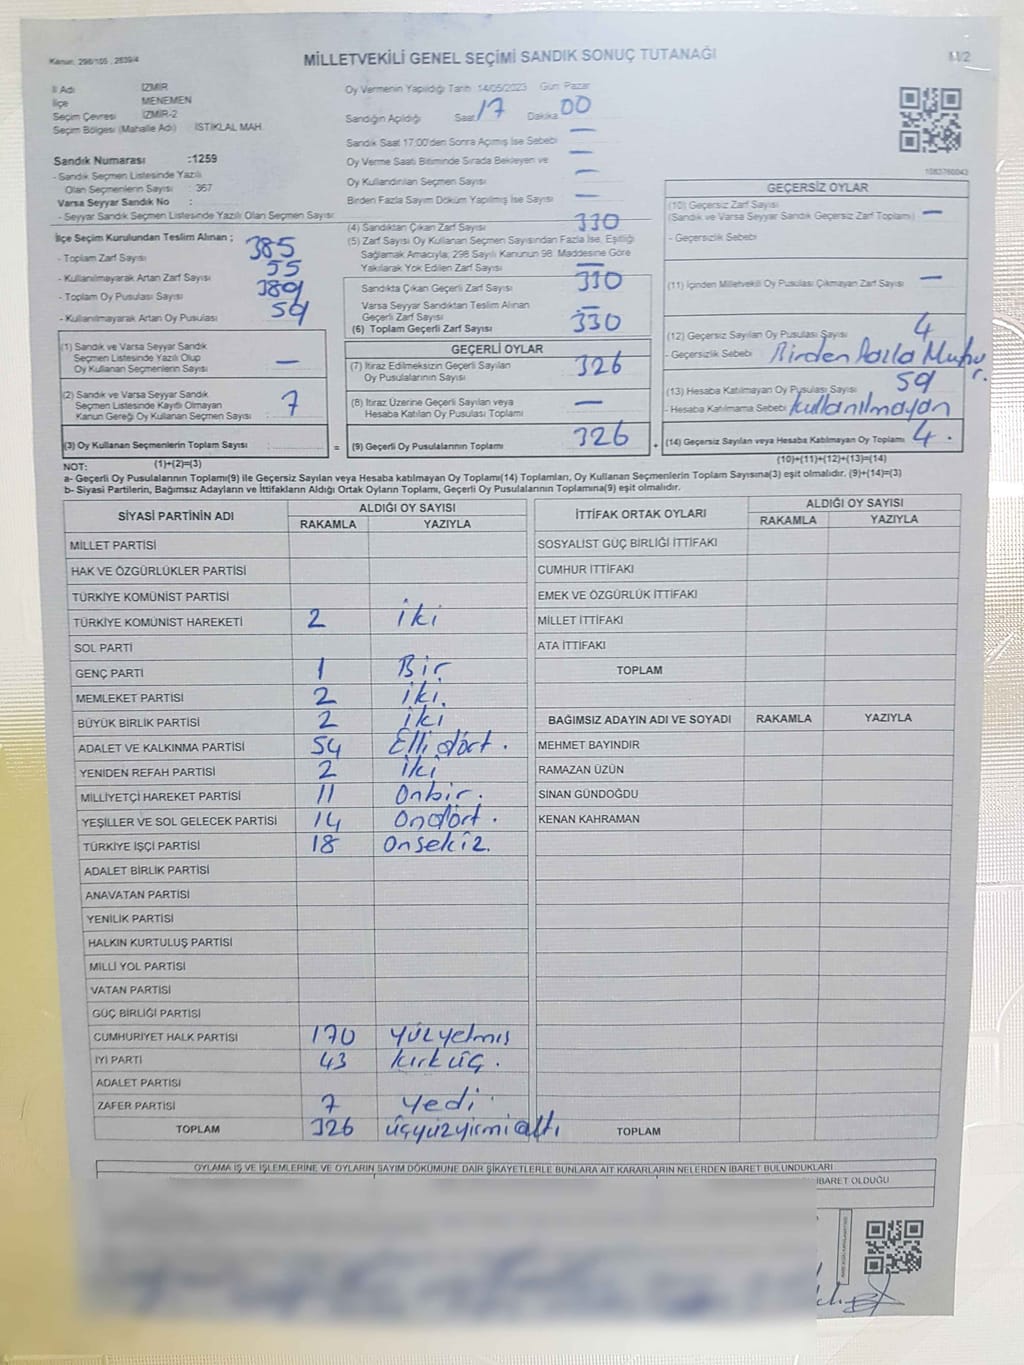 Kanun: 298/105 , 2839/4
MİLLETVEKİLİ GENEL SEÇİMİ SANDIK SONUÇ TUTANAĞI
M/2
İl Adı İZMİR
İlçe MENEMEN
Seçim Çevresi İZMİR-2
Seçim Bölgesi (Mahalle Adı) İSTİKLAL MAH.
Oy Vermenin Yapıldığı Tarih 14/05/2023 Gün Pazar
Sandığın Açıldığı Saat 17 Dakika 00
Sandık Saat 17:00'den Sonra Açımış İse Sebebi —
Oy Verme Saati Bitiminde Sırada Bekleyen ve —
Oy Kullandırılan Seçmen Sayısı —
Birden Fazla Sayım Döküm Yapılmış İse Sayısı —
Sandık Numarası :1259
- Sandık Seçmen Listesinde Yazılı
Olan Seçmenlerin Sayısı : 367
Varsa Seyyar Sandık No :
- Seyyar Sandık Seçmen Listesinde Yazılı Olan Seçmen Sayısı
1083760043
İlçe Seçim Kurulundan Teslim Alınan ;
- Toplam Zarf Sayısı 385
- Kullanılmayarak Artan Zarf Sayısı 55
- Toplam Oy Pusulası Sayısı 389
- Kullanılmayarak Artan Oy Pusulası 59
(1) Sandık ve Varsa Seyyar Sandık
Seçmen Listesinde Yazılı Olup
Oy Kullanan Seçmenlerin Sayısı —
(2) Sandık ve Varsa Seyyar Sandık
Seçmen Listesinde Kayıtlı Olmayan
Kanun Gereği Oy Kullanan Seçmen Sayısı : 7
(3) Oy Kullanan Seçmenlerin Toplam Sayısı =
(4) Sandıktan Çıkan Zarf Sayısı 330
(5) Zarf Sayısı Oy Kullanan Seçmen Sayısından Fazla İse, Eşitliği
Sağlamak Amacıyla; 298 Sayılı Kanunun 98. Maddesine Göre
Yakılarak Yok Edilen Zarf Sayısı —
Sandıkta Çıkan Geçerli Zarf Sayısı 330
Varsa Seyyar Sandıktan Teslim Alınan
Geçerli Zarf Sayısı —
(6) Toplam Geçerli Zarf Sayısı 330
GEÇERLİ OYLAR
(7) İtiraz Edilmeksizin Geçerli Sayılan
Oy Pusulalarının Sayısı 326
(8) İtiraz Üzerine Geçerli Sayılan veya
Hesaba Katılan Oy Pusulası Toplamı —
(9) Geçerli Oy Pusulalarının Toplamı 326 +
GEÇERSİZ OYLAR
(10) Geçersiz Zarf Sayısı
(Sandık ve Varsa Seyyar Sandık Geçersiz Zarf Toplamı) —
- Geçersizlik Sebebi
(11) İçinden Milletvekili Oy Pusulası Çıkmayan Zarf Sayısı —
(12) Geçersiz Sayılan Oy Pusulası Sayısı 4
- Geçersizlik Sebebi Birden Fazla Mühür.
(13) Hesaba Katılmayan Oy Pusulası Sayısı 59
- Hesaba Katılmama Sebebi Kullanılmayan
(14) Geçersiz Sayılan veya Hesaba Katılmayan Oy Toplamı 4.
NOT: (1)+(2)=(3)
(10)+(11)+(12)+(13)=(14)
a- Geçerli Oy Pusulalarının Toplamı(9) ile Geçersiz Sayılan veya Hesaba katılmayan Oy Toplamı(14) Toplamları, Oy Kullanan Seçmenlerin Toplam Sayısına(3) eşit olmalıdır. (9)+(14)=(3)
b- Siyasi Partilerin, Bağımsız Adayların ve İttifakların Aldığı Ortak Oyların Toplamı, Geçerli Oy Pusulalarının Toplamına(9) eşit olmalıdır.
SİYASİ PARTİNİN ADI ALDIĞI OY SAYISI
RAKAMLA YAZIYLA
MİLLET PARTİSİ
HAK VE ÖZGÜRLÜKLER PARTİSİ
TÜRKİYE KOMÜNİST PARTİSİ
TÜRKİYE KOMÜNİST HAREKETİ 2 iki
SOL PARTİ
GENÇ PARTİ 1 Bir
MEMLEKET PARTİSİ 2 iki.
BÜYÜK BİRLİK PARTİSİ 2 iki
ADALET VE KALKINMA PARTİSİ 54 Elli dört.
YENİDEN REFAH PARTİSİ 2 iki
MİLLİYETÇİ HAREKET PARTİSİ 11 Onbir.
YEŞİLLER VE SOL GELECEK PARTİSİ 14 Ondört.
TÜRKİYE İŞÇİ PARTİSİ 18 Onsekiz.
ADALET BİRLİK PARTİSİ
ANAVATAN PARTİSİ
YENİLİK PARTİSİ
HALKIN KURTULUŞ PARTİSİ
MİLLİ YOL PARTİSİ
VATAN PARTİSİ
GÜÇ BİRLİĞİ PARTİSİ
CUMHURİYET HALK PARTİSİ 170 yüzyetmiş
İYİ PARTİ 43 kırküç.
ADALET PARTİSİ
ZAFER PARTİSİ 7 yedi.
TOPLAM 326 üçyüzyirmialtı
İTTİFAK ORTAK OYLARI ALDIĞI OY SAYISI
RAKAMLA YAZIYLA
SOSYALİST GÜÇ BİRLİĞİ İTTİFAKI
CUMHUR İTTİFAKI
EMEK VE ÖZGÜRLÜK İTTİFAKI
MİLLET İTTİFAKI
ATA İTTİFAKI
TOPLAM
BAĞIMSIZ ADAYIN ADI VE SOYADI RAKAMLA YAZIYLA
MEHMET BAYINDIR
RAMAZAN ÜZÜN
SİNAN GÜNDOĞDU
KENAN KAHRAMAN
TOPLAM
OYLAMA İŞ VE İŞLEMLERİNE VE OYLARIN SAYIM DÖKÜMÜNE DAİR ŞİKAYETLERLE BUNLARA AİT KARARLARIN NELERDEN İBARET BULUNDUKLARI
İBARET OLDUĞU